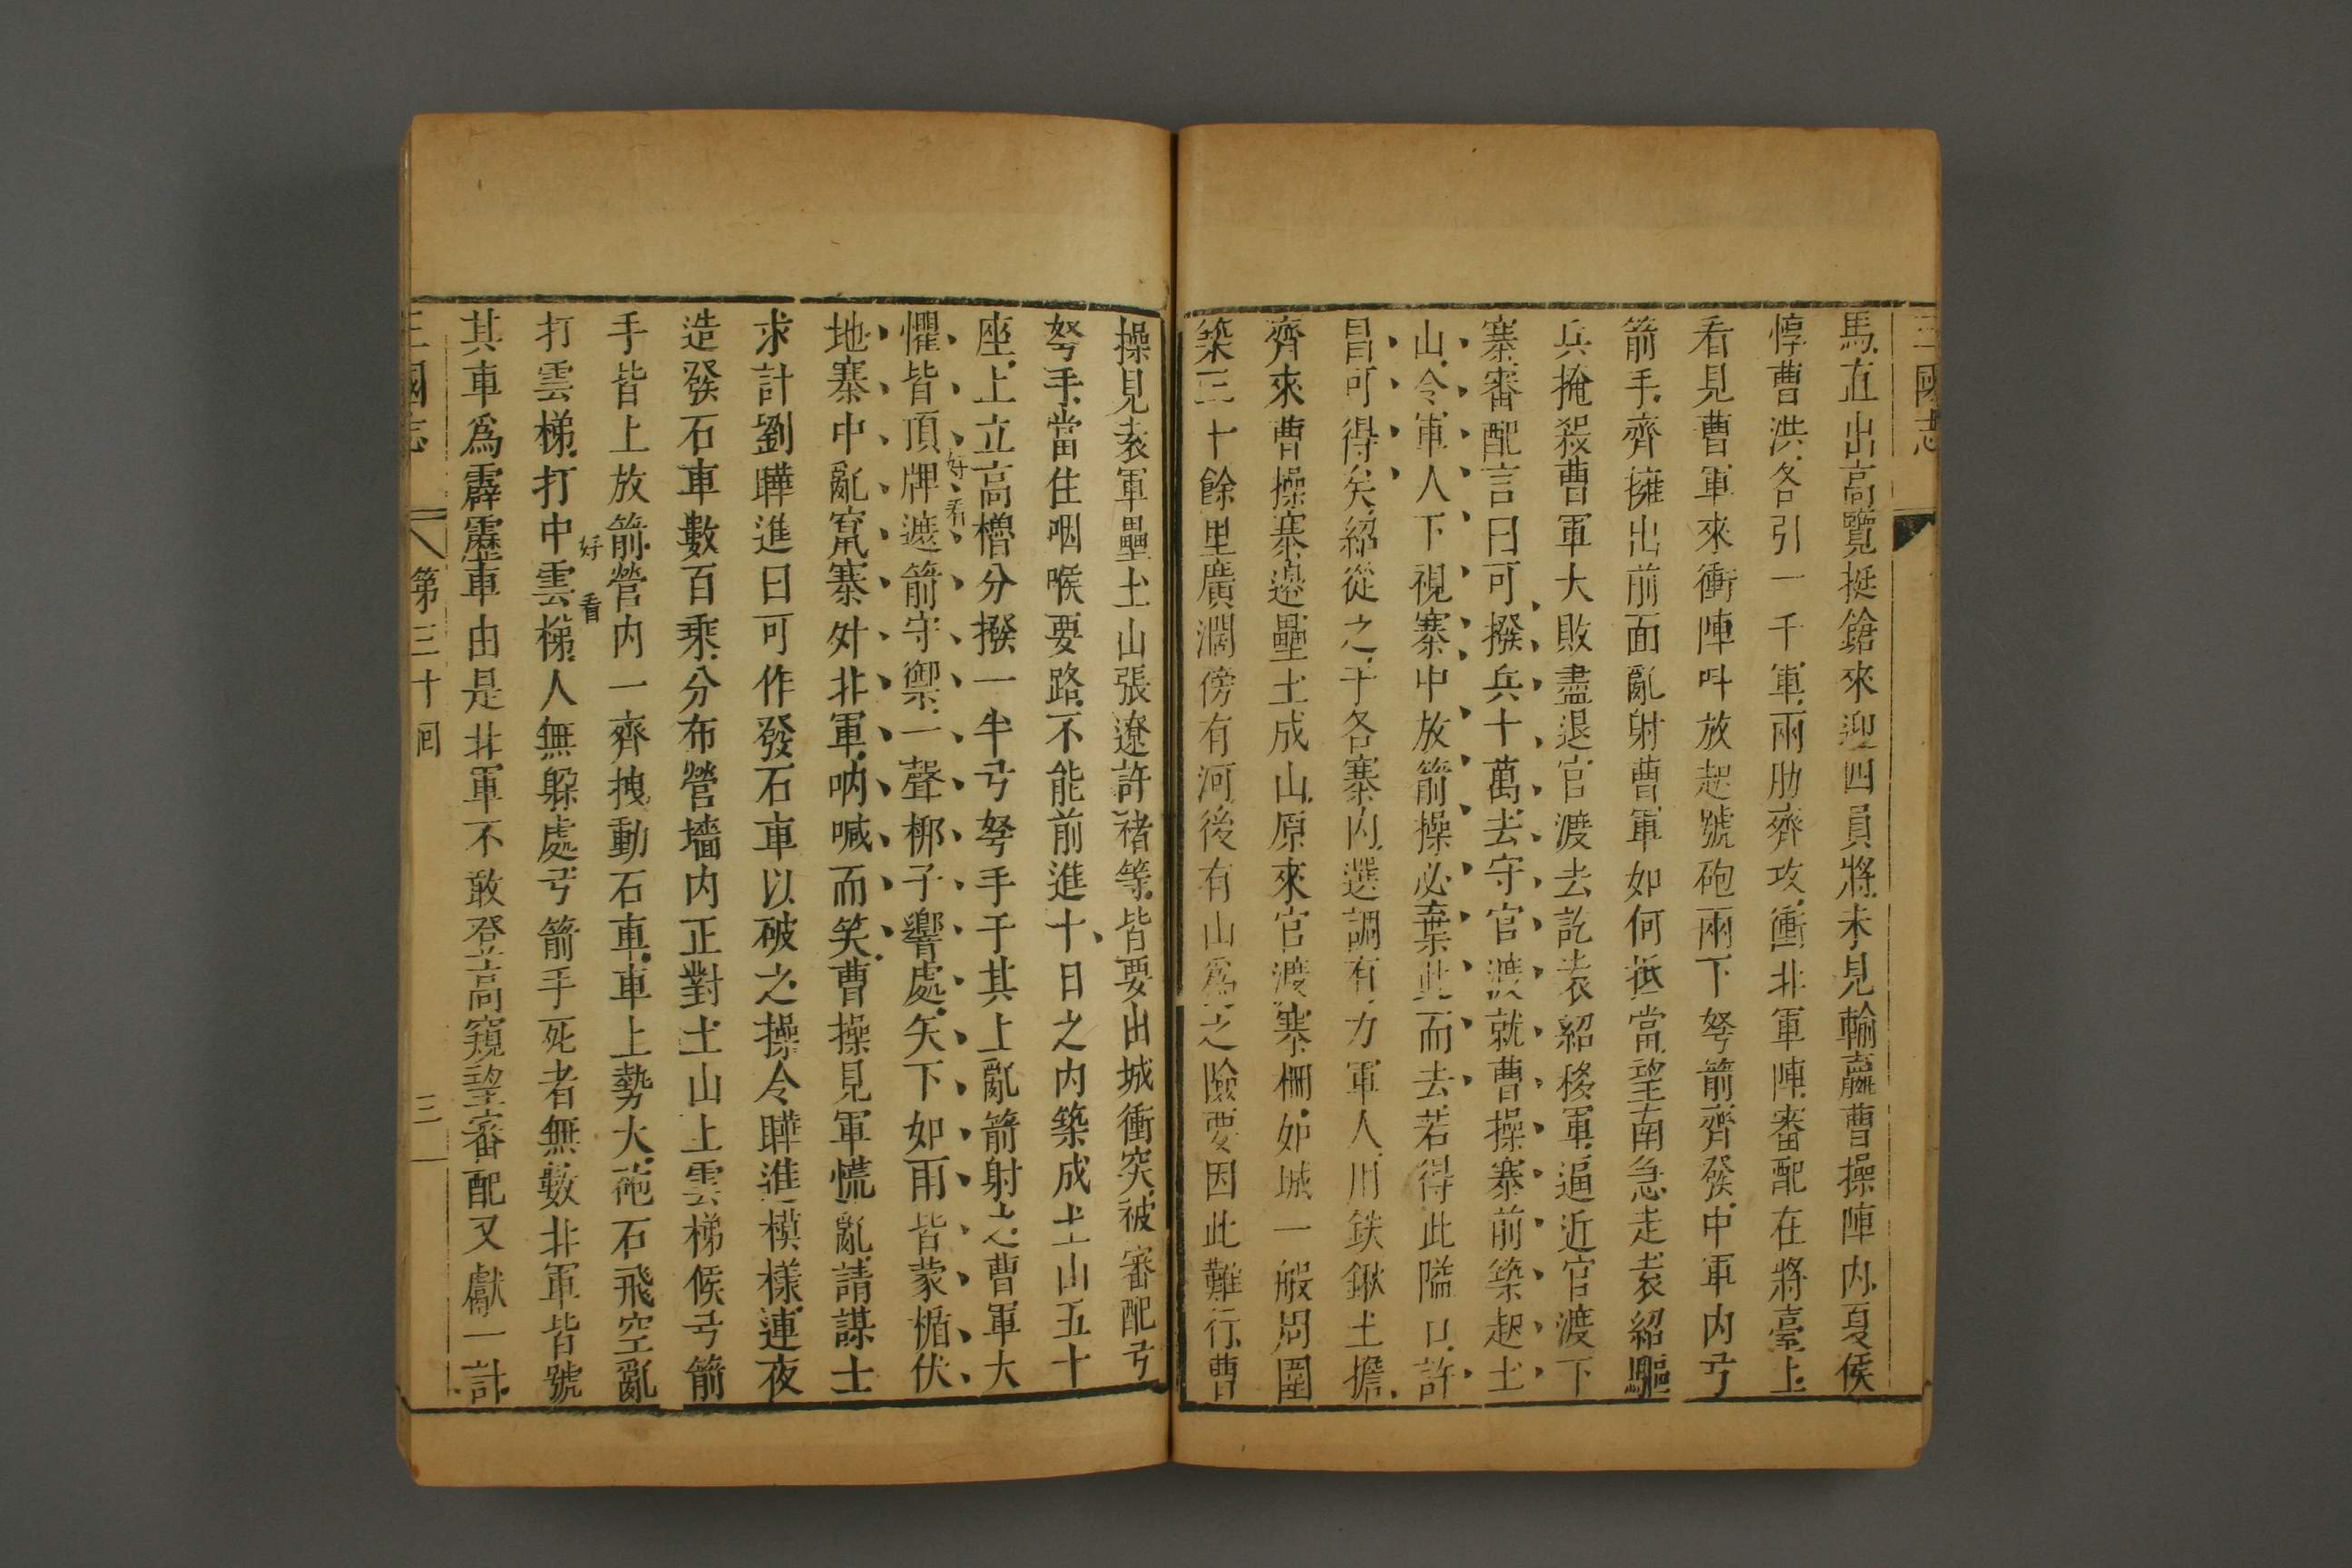 三國志
馬直出高覽挺鎗來迎四員將未見輸贏曹操陣内夏侯
惇曹洪各引一千軍兩肋齊攻衝北軍陣審配在將臺上
看見曹軍來衝陣呌放起號砲兩下弩箭齊發中軍内弓
箭手齊擁出前面亂射曹軍如何抵當望南急走袁紹驅
兵掩殺曹軍大敗盡退官渡去訖袁紹移軍逼近官渡下
寨審配言曰可撥兵十萬去守官渡就曹操寨前築起土
山令軍人下視寨中放箭操必棄此而去若得此隘口許
昌可得矣紹從之于各寨内選調有力軍人用鉄鍬土擔
齊來曹操寨邉壘土成山原來官渡寨柵如城一般周圍
築三十餘里廣濶傍有河後有山爲之險要因此難行曹
操見袁軍壘土山張遼許褚等皆要出城衝突被審配弓
弩手當住咽喉要路不能前進十日之内築成土山五十
座上立高櫓分撥一半弓弩手于其上亂箭射之曹軍大
好看
懼皆頂牌遮箭守禦一聲梆子響處矢下如雨皆蒙楯伏
地寨中亂竄寨外北軍吶喊而笑曹操見軍慌亂請謀士
求計劉曄進曰可作發石車以破之操令曄進模樣連夜
造發石車數百乘分布營墻内正對土山上雲梯候弓箭
手皆上放箭營内一齊拽動石車車上勢大砲石飛空亂
好看
打雲梯打中雲梯人無躲處弓箭手死者無數北軍皆號
其車爲霹靂車由是北軍不敢登高窺望審配又獻一計
三國志 第三十囘 三